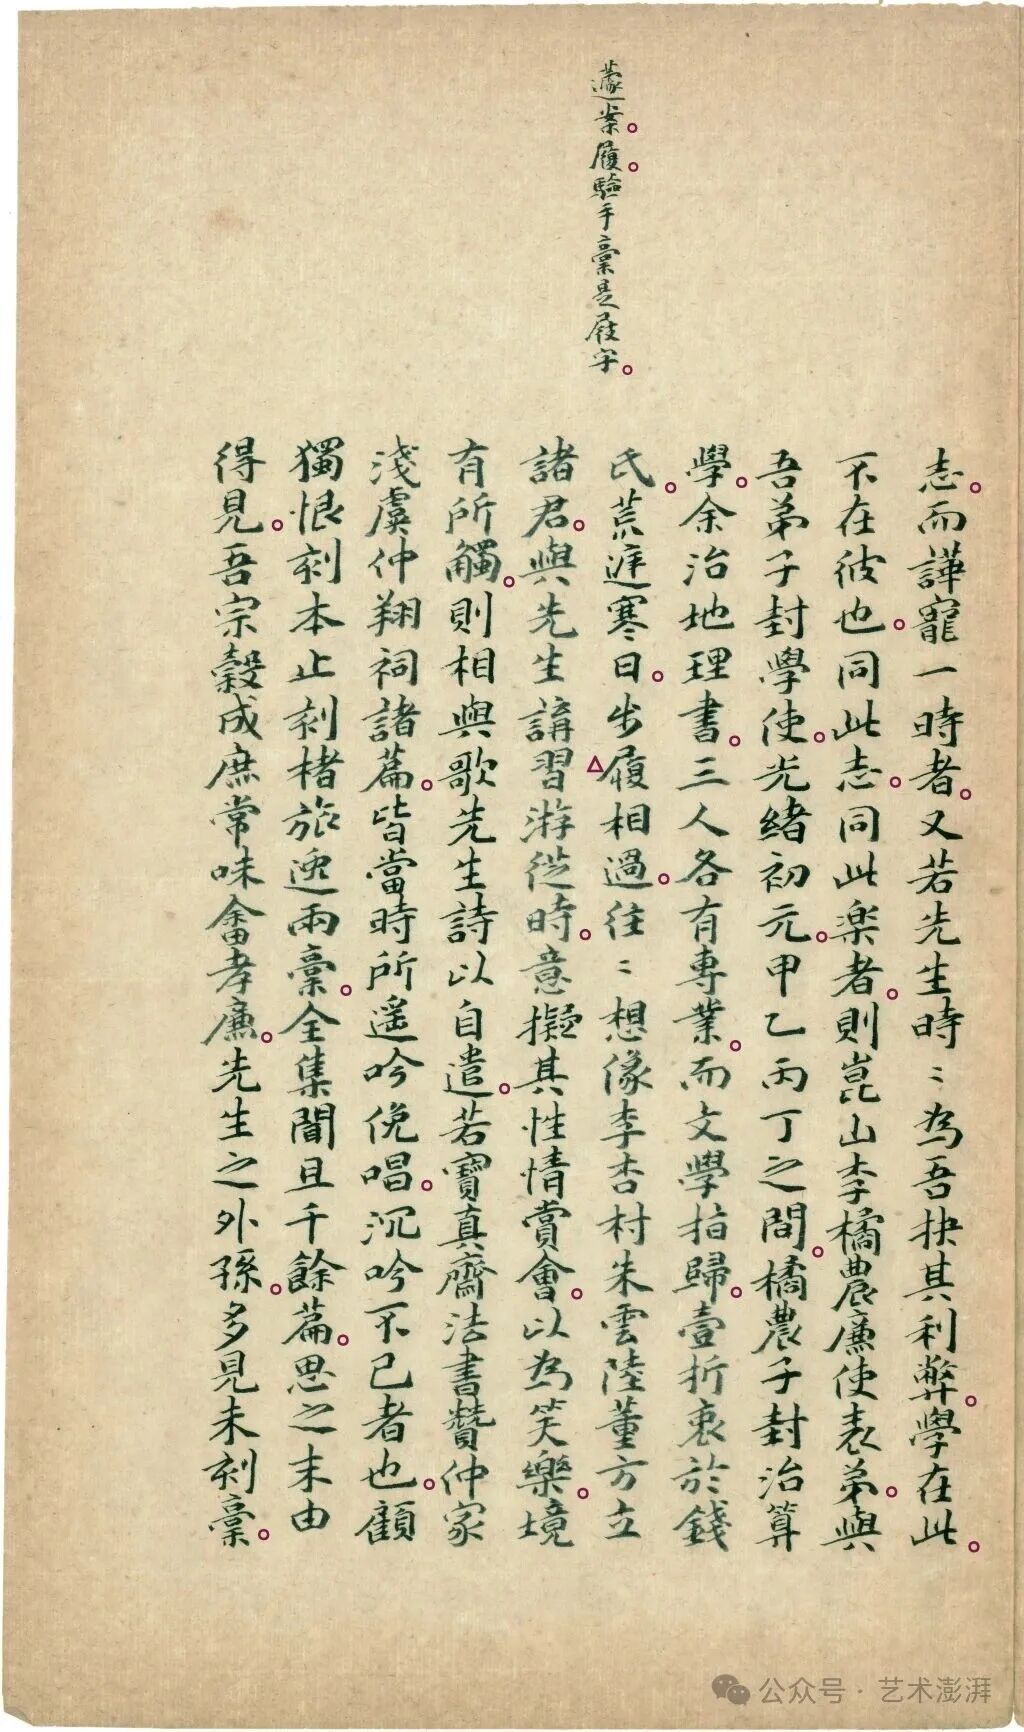 蘧案履驗手稾是屐字
志而譁寵一時者又若先生時〻為吾抉其利弊學在此
不在彼也同此志同此楽者則崑山李橘農廉使表弟與
吾弟子封學使光緒初元甲乙丙丁之間橘農子封治算
學余治地理書三人各有專業而文學指歸壹折衷於錢
氏荒遅寒日步履相過往〻想像李杏村朱雲陸董方立
諸君與先生講習游從時意擬其性情賞會以為笑樂境
有所觸則相與歌先生詩以自遣若寶真齋法書贊仲家
淺虞仲翔祠諸篇皆當時所遥吟俛唱沉吟不已者也顧
獨恨刻本止刻楮旅逸兩稾全集聞且千餘篇思之末由
得見吾宗穀成庶常味畬孝廉先生之外孫多見未刻稾
公众号·艺术澎湃